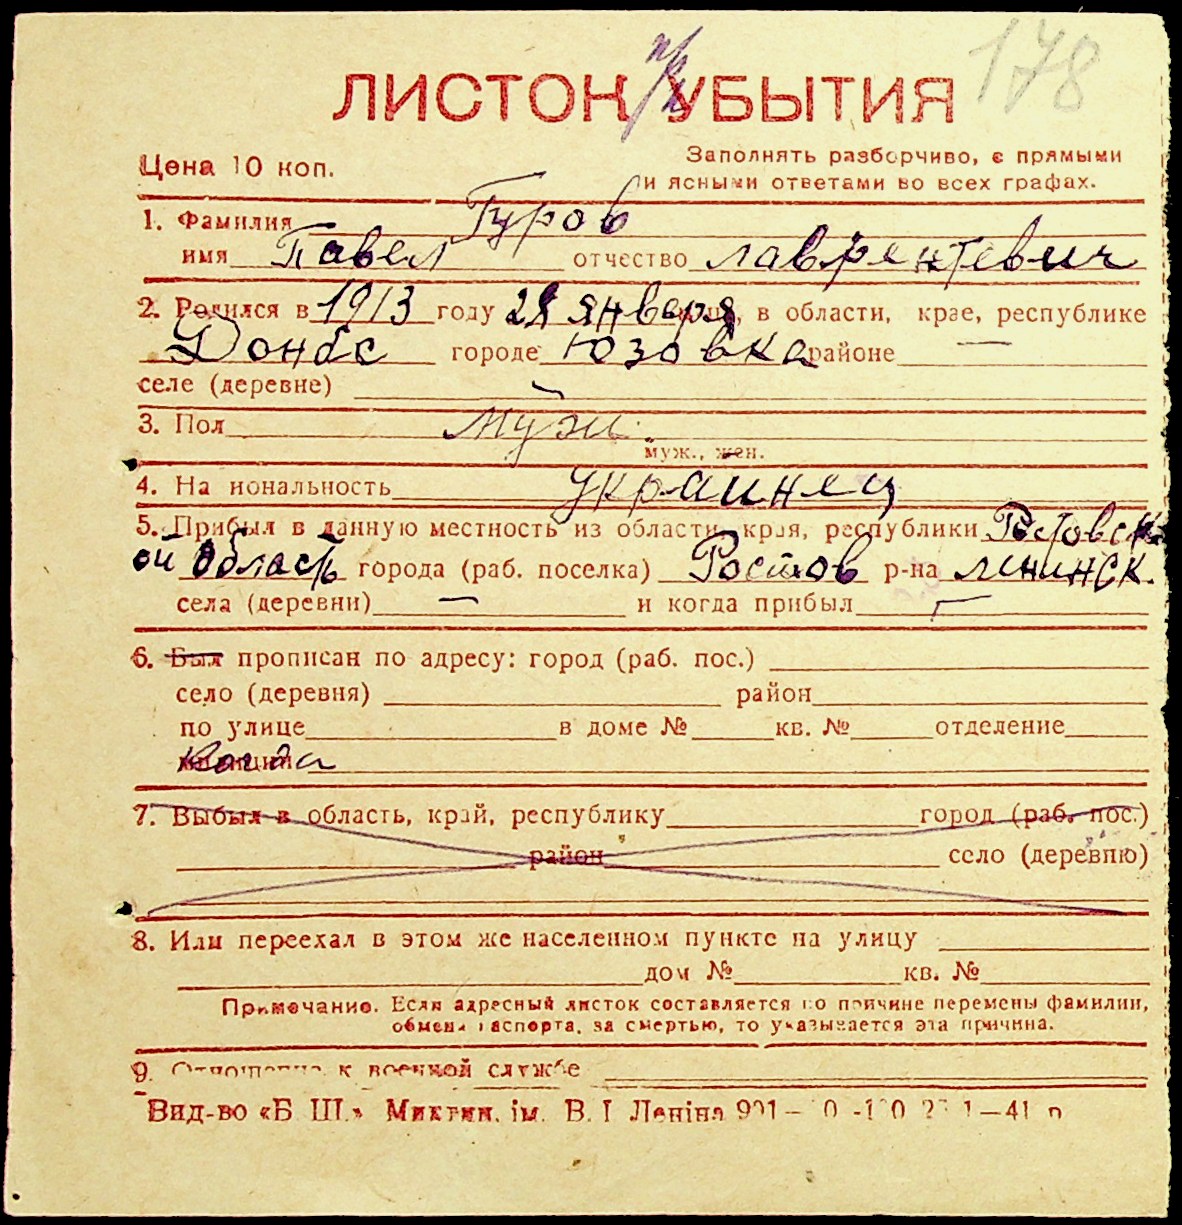 178
ЛИСТОК УБЫТИЯ
Цена 10 коп.
Заполнять разборчиво, с прямыми
и ясными ответами во всех графах.
1. Фамилия Гуров
имя Павел отчество лаврентевич
2. Родился в 1913 году 28 января, в области, крае, республике
Донбс городе Юзовка районе —
селе (деревне) —
3. Пол муж.
муж., жен.
4. Национальность украинец
5. Прибыл в данную местность из области, края, республики Ростовск
ой область города (раб. поселка) Ростов р-на ленинск.
села (деревни) — и когда прибыл —
6. Был прописан по адресу: город (раб. пос.)
село (деревня) район
по улице в доме № кв. № отделение
милиции Когда
7. Выбыл в область, край, республику город (раб. пос.)
район село (деревню)
8. Или переехал в этом же населенном пункте на улицу
дом № кв. №
Примечание. Если адресный листок составляется по причине перемены фамилии,
обмена паспорта, за смертью, то указывается эта причина.
9. Отношение к военной службе
Вид-во «Б. Ш.» ім. В. І. Леніна